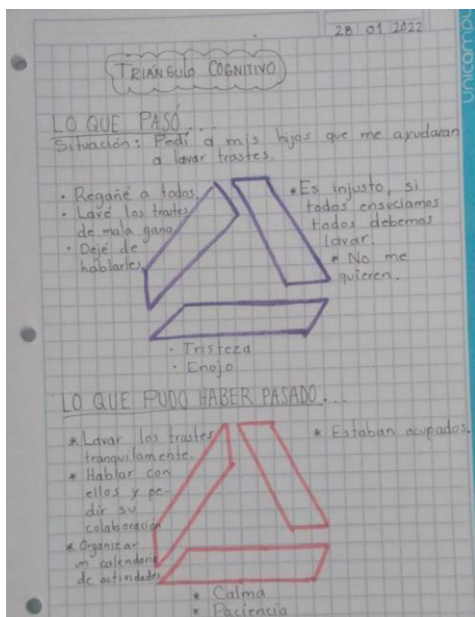 28 01 2022
unicampus
TRIÁNGULO COGNITIVO
LO QUE PASÓ...
Situación: Pedí a mis hijos que me ayudaran
a lavar trastes.
· Regañé a todos
· Lavé los trastes
de mala gana
· Dejé de
hablarles
* Es injusto, si
todos ensuciamos
todos debemos
lavar
* No me
quieren.
· Tristeza
· Enojo
LO QUE PUDO HABER PASADO...
* Lavar los trastes
tranquilamente.
* Hablar con
ellos y pe-
dir su
colaboración
* Organizar
un calendario
de actividades
* Estaban ocupados.
* Calma
* Paciencia